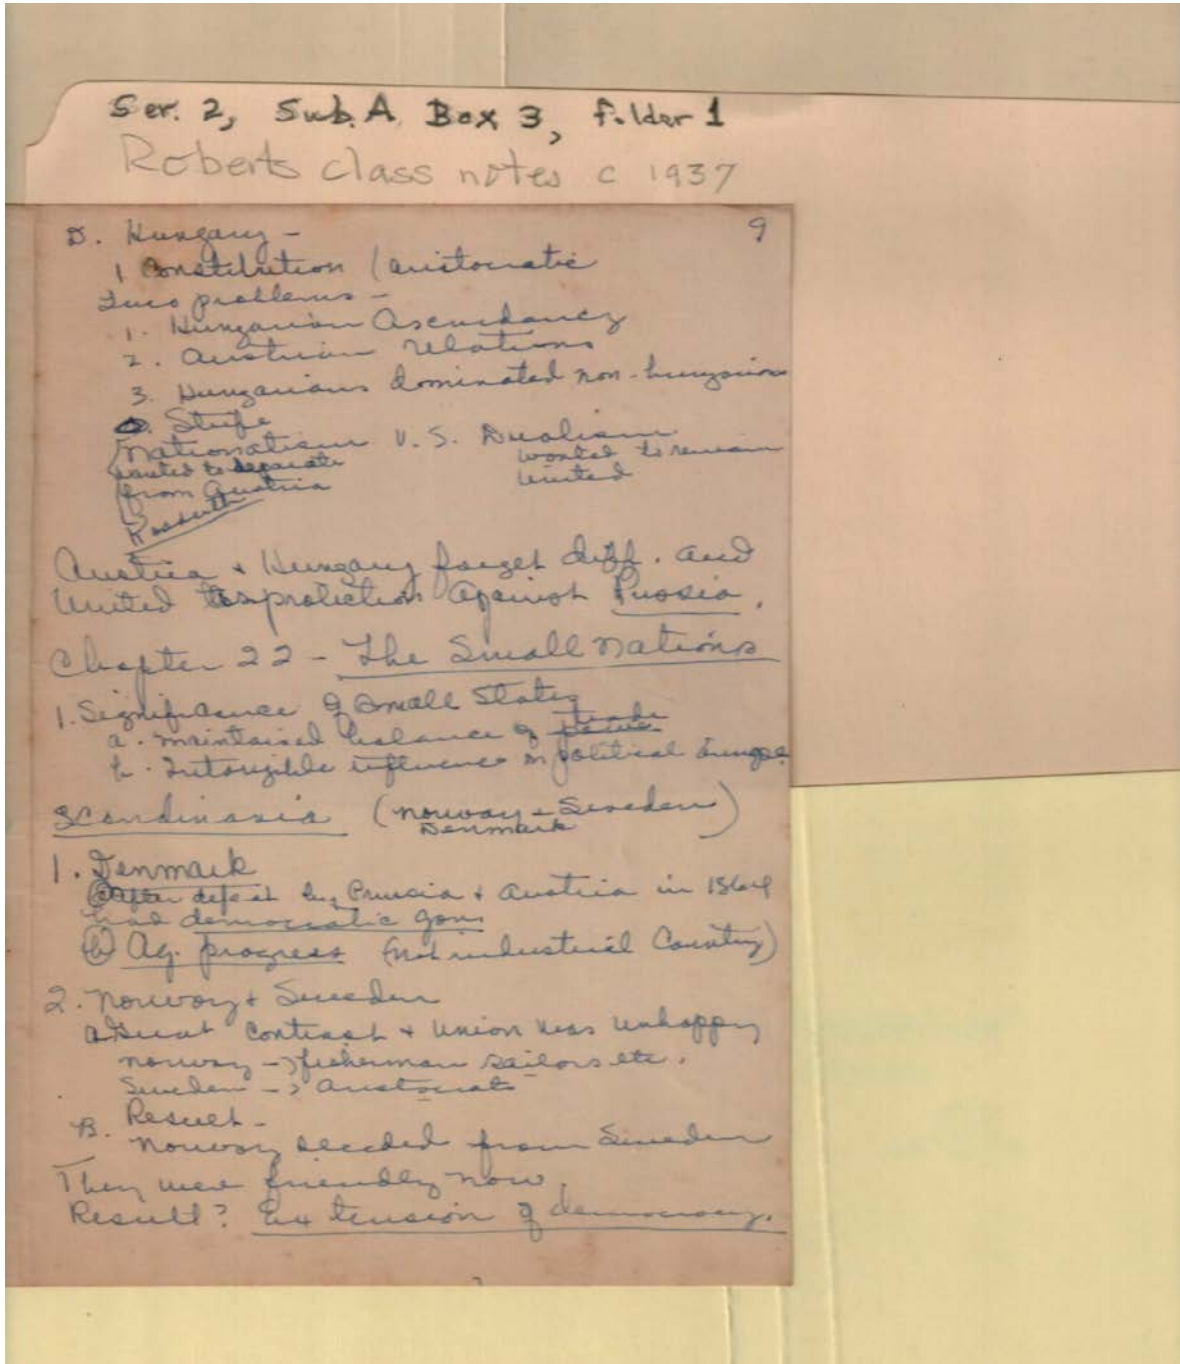 Ser. 2, Sub. A, Box 3, folder 1
Roberts class notes c 1937
9
D. Hungary -
1 Constitution (aristocratic
Two problems -
1. Hungarian Ascendancy
2. Austrian relations
3. Hungarians dominated non-hungarians
Strife
Nationalism V.S. Dualism
wanted to separate wanted to remain
from Austria United
Kossuth
Austria + Hungary forget diff. and
United protection Against Russia.
Chapter 22 - The Small Nations
1. Significance of Small States
a. maintained balance of
b. Intangible influence on political Europe
Scandinavia (Norway + Sweden)
Denmark
1. Denmark
a After defeat by Prussia + Austria in 1864
had democratic gov.
b Ag. progress (not industrial Country)
2. Norway + Sweden
a Great Contrast + Union was unhappy
Norway -> fisherman sailors etc.
Sweden -> Aristocrats
B. Result -
Norway seceded from Sweden
They were friendly now.
Result? Extension of democracy.